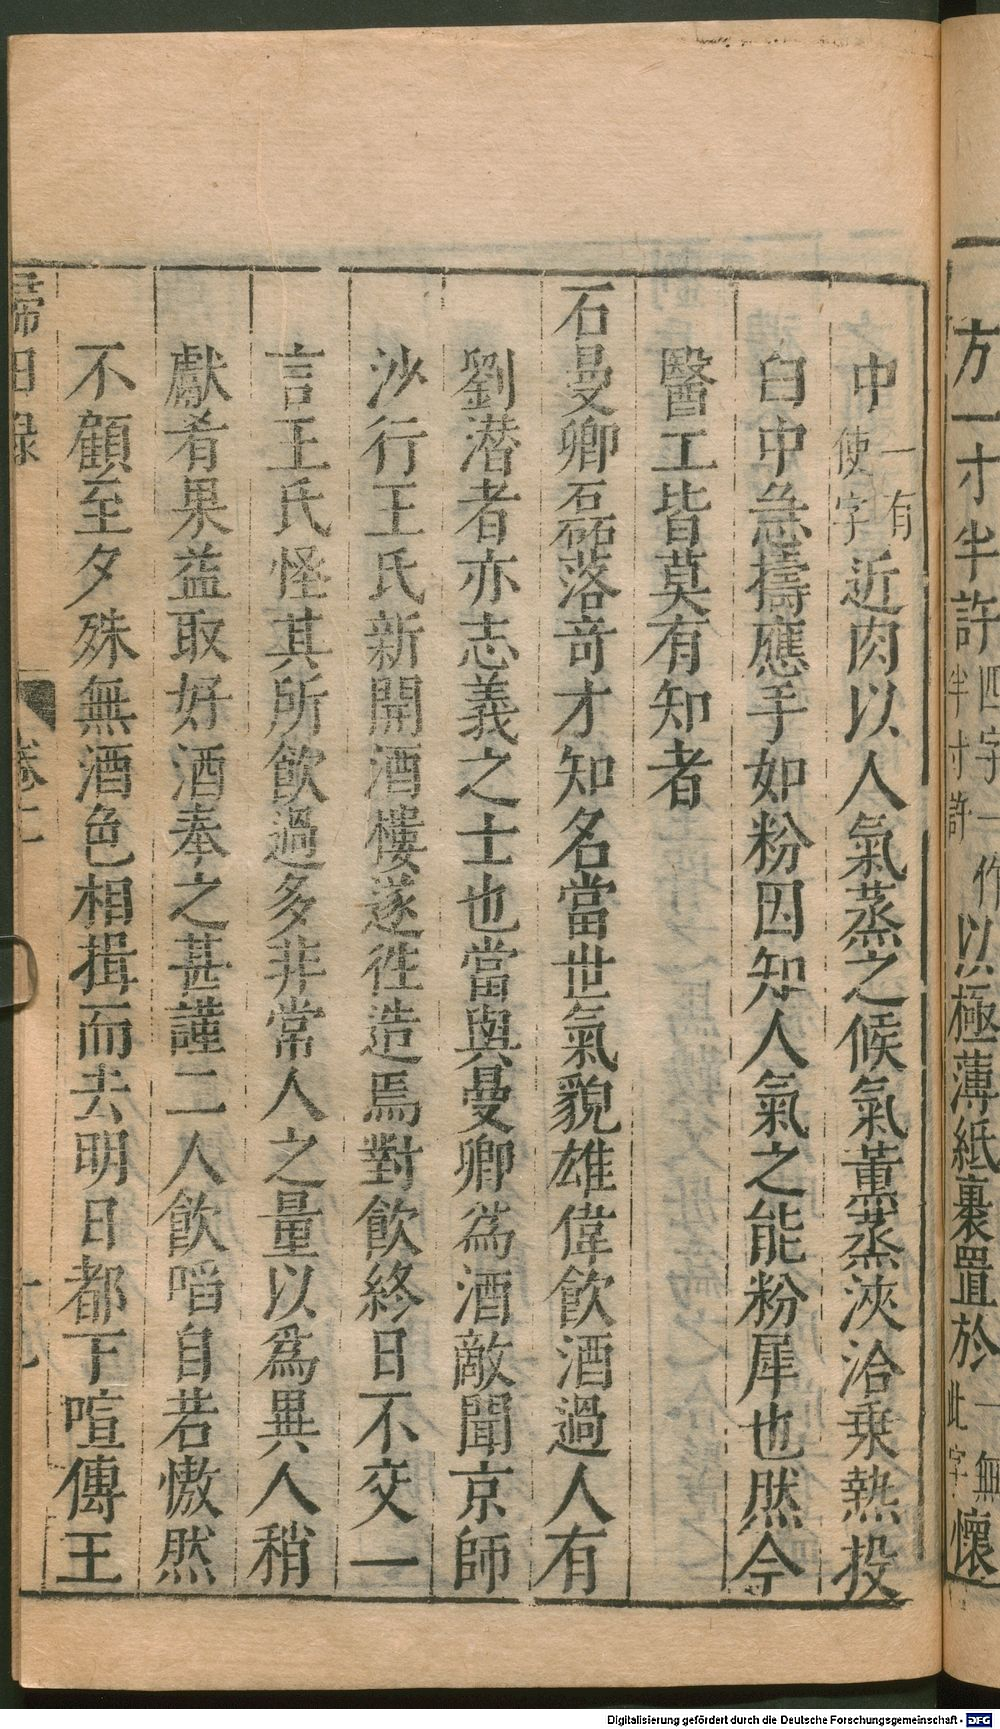 方一寸半許四字一作半寸許以極薄紙裹置於一無此字懷
中一有使字近肉以人氣蒸之候氣薰蒸浹洽乗熱投
臼中急擣應手如粉因知人氣之能粉犀也然今
醫工皆莫有知者
石曼卿磊落竒才知名當世氣貌雄偉飲酒過人有
劉濳者亦志義之士也當與曼卿為酒敵聞京師
沙行王氏新開酒樓遂徃造焉對飲終日不交一
言王氏怪其所飲過多非常人之量以為異人稍
獻肴果益取好酒奉之甚謹二人飲㗖自若慠然
不顧至夕殊無酒色相揖而去明日都下喧傳王
歸田録
卷二
Digitalisierung gefördert durch die Deutsche Forschungsgemeinschaft - DFG